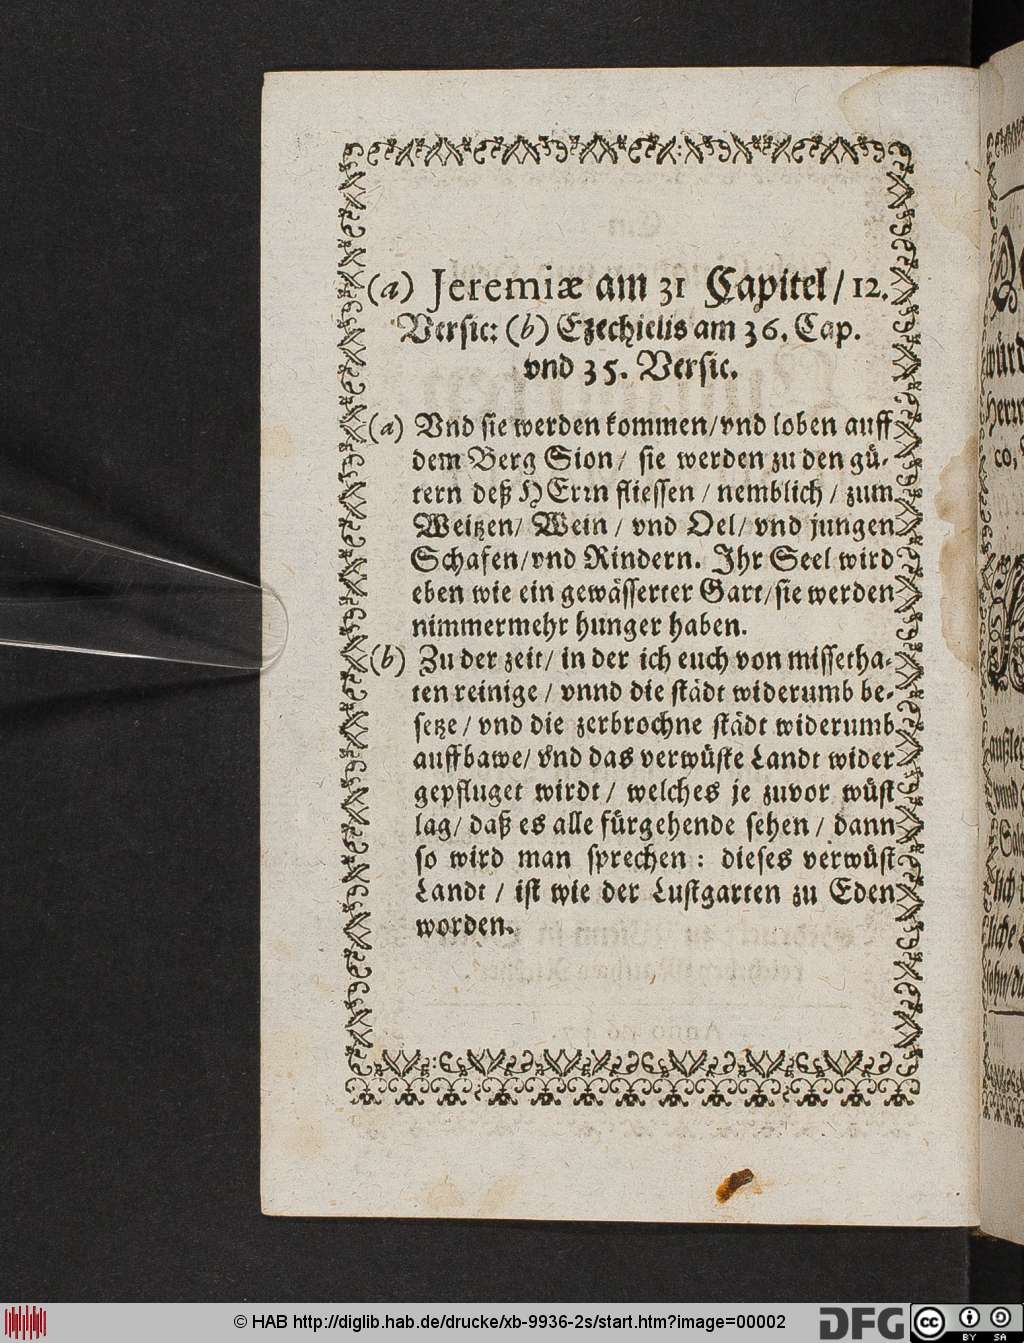 (a) Jeremiæ am 31 Capitel / 12.
Versic: (b) Ezechielis am 36. Cap.
vnd 35. Versic.
(a) Vnd sie werden kommen/vnd loben auff
dem Berg Sion / sie werden zu den gü-
tern deß HErrn fliessen / nemblich / zum
Weitzen/ Wein / vnd Oel/ vnd jungen
Schafen/vnd Rindern. Ihr Seel wird
eben wie ein gewässerter Gart/sie werden
nimmermehr hunger haben.
(b) Zu der zeit/ in der ich euch von missetha-
ten reinige / vnnd die städt widerumb be-
setze / vnd die zerbrochne städt widerumb
auffbawe/ vnd das verwüste Landt wider
gepfluget wirdt / welches je zuvor wüst
lag/ daß es alle fürgehende sehen / dann
so wird man sprechen : dieses verwüst
Landt / ist wie der Lustgarten zu Eden
worden.
© HAB http://diglib.hab.de/drucke/xb-9936-2s/start.htm?image=00002
DFG
cc
BY SA